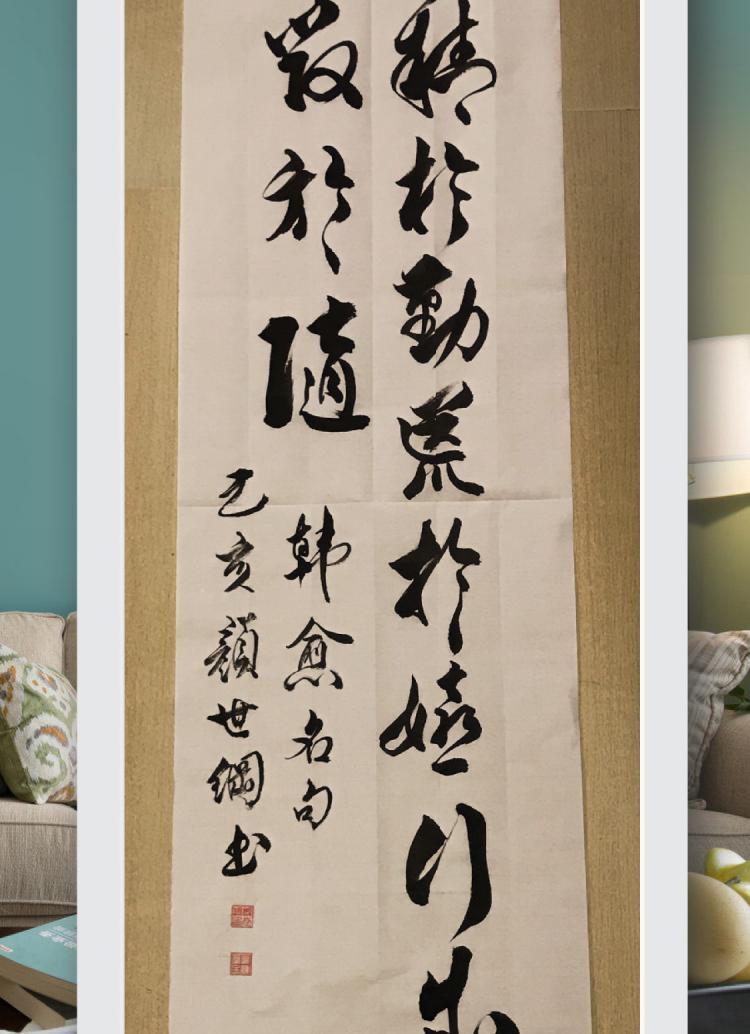 精於勤荒於嬉行成
毀於隨
韩愈名句
己亥顏世綱书